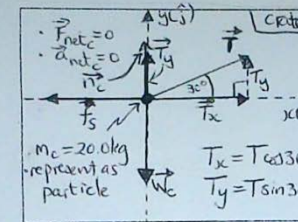 y(ĵ)
crat
· F⃗net_c = 0
· a⃗net_c = 0
n⃗_c
T⃗_y
T⃗
30°
T_y
f⃗_s
T⃗_x
x(
m_c = 20.0kg
·represent as
particle
W⃗_c
T_x = Tcos3
T_y = Tsin3